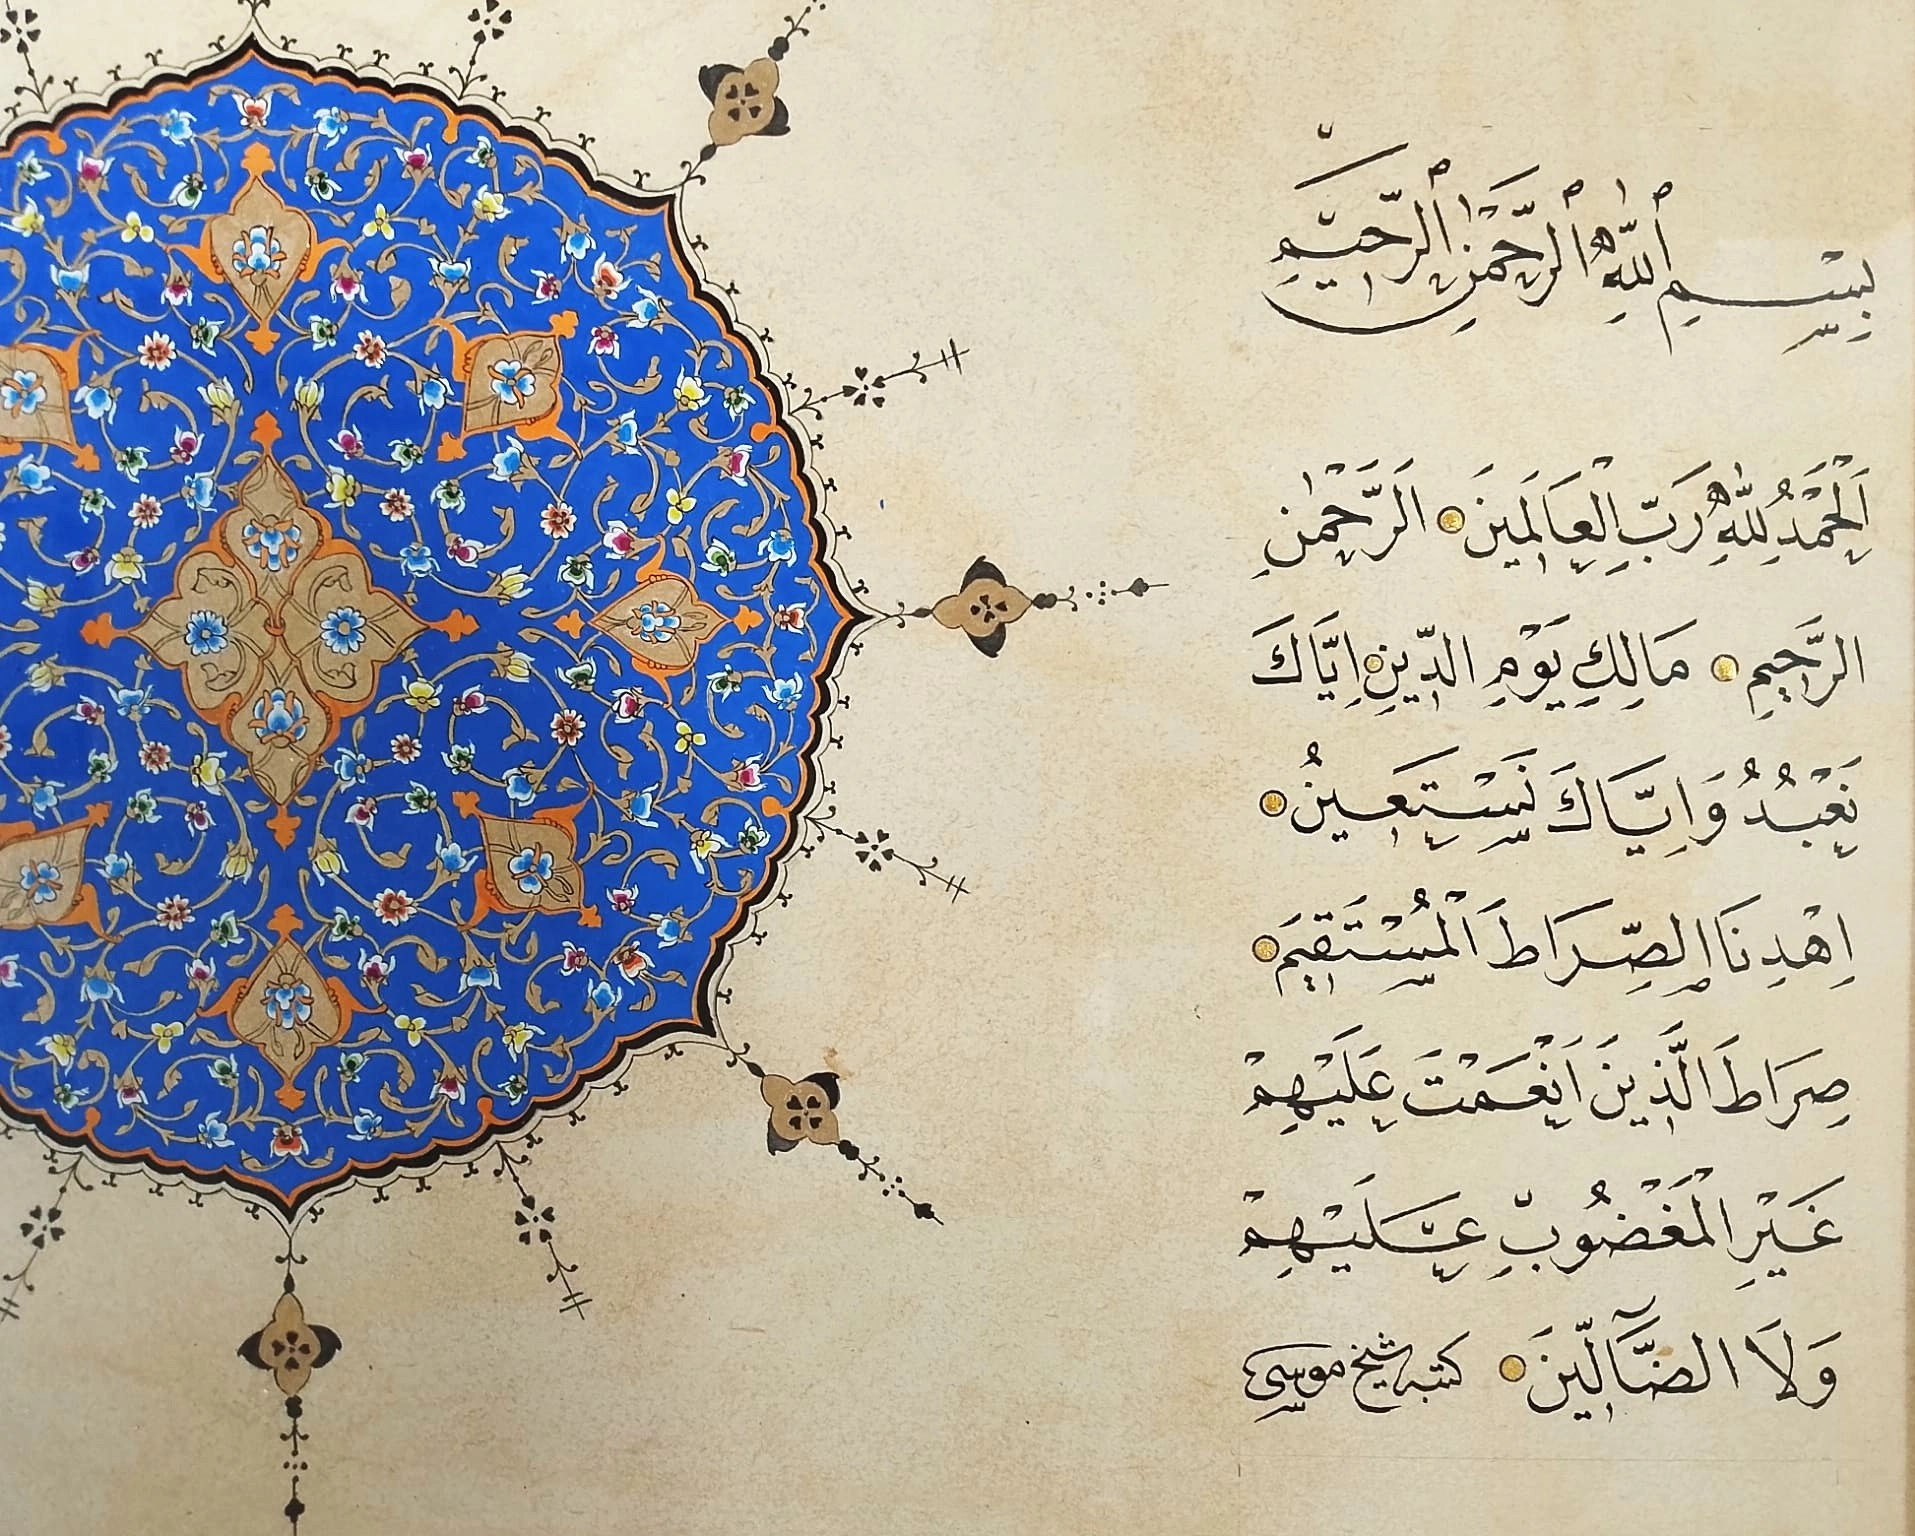 بِسْمِ ٱللَّهِ ٱلرَّحْمَٰنِ ٱلرَّحِيمِ
اَلْحَمْدُ لِلَّهِ رَبِّ الْعَالَمِينَ اَلرَّحْمٰنِ
الرَّحِيمِ مَالِكِ يَوْمِ الدِّينِ اِيَّاكَ
نَعْبُدُ وَاِيَّاكَ نَسْتَعِينُ
اِهْدِنَا الصِّرَاطَ الْمُسْتَقِيمَ
صِرَاطَ الَّذِينَ اَنْعَمْتَ عَلَيْهِمْ
غَيْرِ الْمَغْضُوبِ عَلَيْهِمْ
وَلَا الضَّآلِّينَ كتبه شيخ موسى